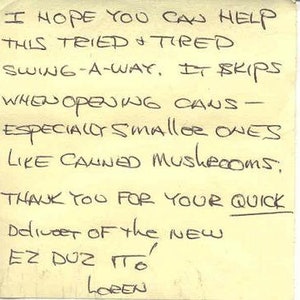 I HOPE YOU CAN HELP
THIS TRIED & TIRED
SWING-A-WAY. IT SKIPS
WHEN OPENING CANS—
ESPECIALLY SMALLER ONES
LIKE CANNED MUSHROOMS.
THANK YOU FOR YOUR QUICK
Delivery OF THE NEW
EZ DUZ IT
LOREN